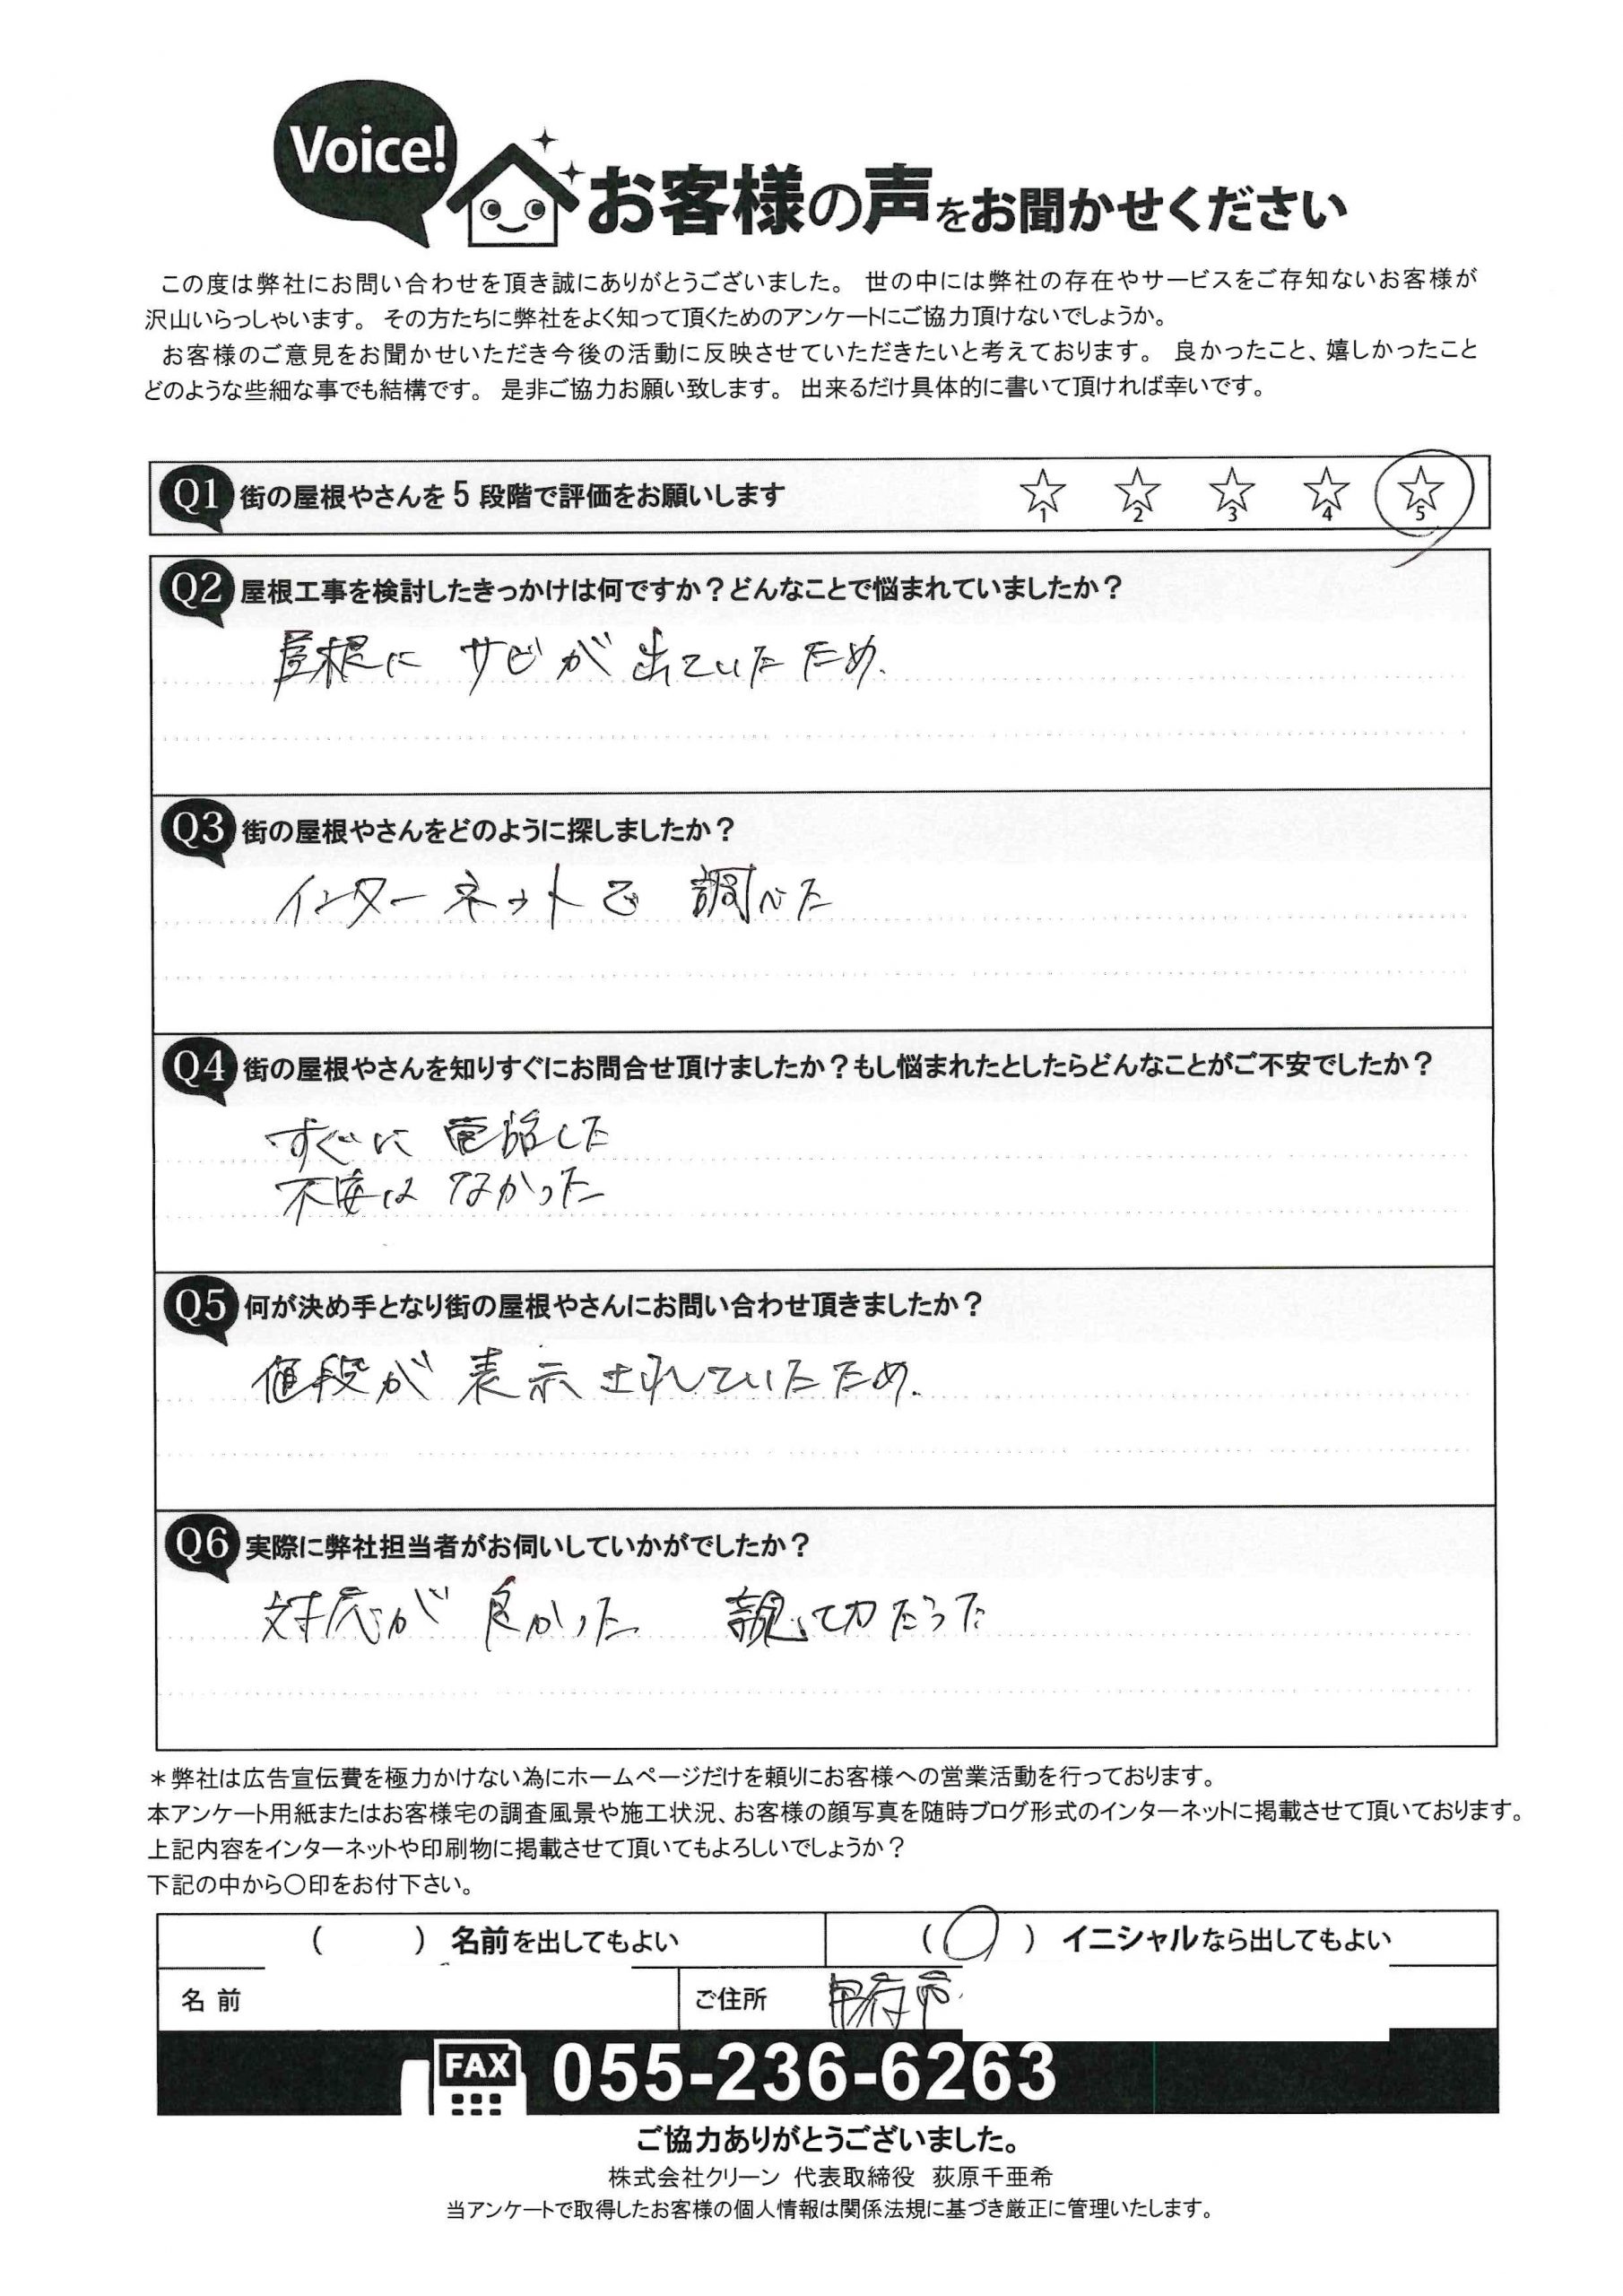 Voice!
お客様の声をお聞かせください
この度は弊社にお問い合わせを頂き誠にありがとうございました。 世の中には弊社の存在やサービスをご存知ないお客様が
沢山いらっしゃいます。 その方たちに弊社をよく知って頂くためのアンケートにご協力頂けないでしょうか。
お客様のご意見をお聞かせいただき今後の活動に反映させていただきたいと考えております。 良かったこと、嬉しかったこと
どのような些細な事でも結構です。 是非ご協力お願い致します。 出来るだけ具体的に書いて頂ければ幸いです。
Q1 街の屋根やさんを5段階で評価をお願いします ☆1 ☆2 ☆3 ☆4 ☆5
Q2 屋根工事を検討したきっかけは何ですか？どんなことで悩まれていましたか？
屋根に サビが 出ていたため.
Q3 街の屋根やさんをどのように探しましたか？
インターネットで 調べた
Q4 街の屋根やさんを知りすぐにお問合せ頂けましたか？もし悩まれたとしたらどんなことがご不安でしたか？
すぐに 電話した
不安は なかった
Q5 何が決め手となり街の屋根やさんにお問い合わせ頂きましたか？
値段が 表示されていたため.
Q6 実際に弊社担当者がお伺いしていかがでしたか？
対応が 良かった 親切だった
＊弊社は広告宣伝費を極力かけない為にホームページだけを頼りにお客様への営業活動を行っております。
本アンケート用紙またはお客様宅の調査風景や施工状況、お客様の顔写真を随時ブログ形式のインターネットに掲載させて頂いております。
上記内容をインターネットや印刷物に掲載させて頂いてもよろしいでしょうか？
下記の中から〇印をお付下さい。
（ ）名前を出してもよい （〇）イニシャルなら出してもよい
名前 ご住所 甲府市
FAX 055-236-6263
ご協力ありがとうございました。
株式会社クリーン 代表取締役 荻原千亜希
当アンケートで取得したお客様の個人情報は関係法規に基づき厳正に管理いたします。